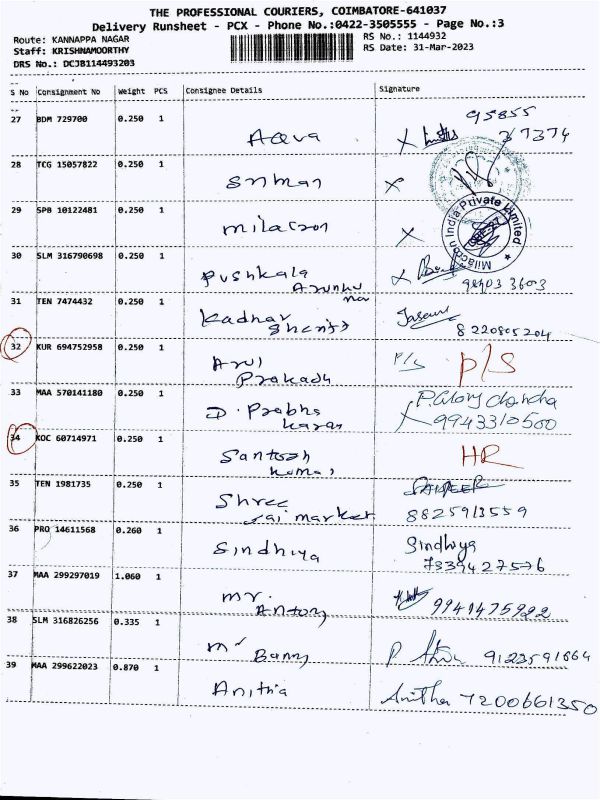 THE PROFESSIONAL COURIERS, COIMBATORE-641037
Delivery Runsheet - PCX - Phone No.:0422-3505555 - Page No.:3
Route: KANNAPPA NAGAR
RS No.: 1144932
Staff: KRISHNAMOORTHY
RS Date: 31-Mar-2023
DRS No.: DCJB114493203
S No Consignment No Weight PCS Consignee Details Signature
27 BDM 729700 0.250 1
95855
37374
28 TCG 15057822 0.250 1
X
29 SPB 10122481 0.250 1 milacron X
Milacron India Private Limited
30 SLM 316790698 0.250 1 Pushkala
31 TEN 7474432 0.250 1 Kadhar
8220805204
32 KUR 694752958 0.250 1 Arul P/S P/S
Prakash
33 MAA 570141180 0.250 1 D. Prabha
karan
9943310500
34 KOC 60714971 0.250 1 Santosh HR
kumar
35 TEN 1981735 0.250 1 Shree
sai market 8825913559
36 PRO 14611568 0.260 1 Sindhiya Sindhiya
7339427576
37 MAA 299297019 1.060 1 mr.
Antony
38 SLM 316826256 0.335 1 mr
9123591664
39 MAA 299622023 0.870 1 Anitha Anitha 7200661350